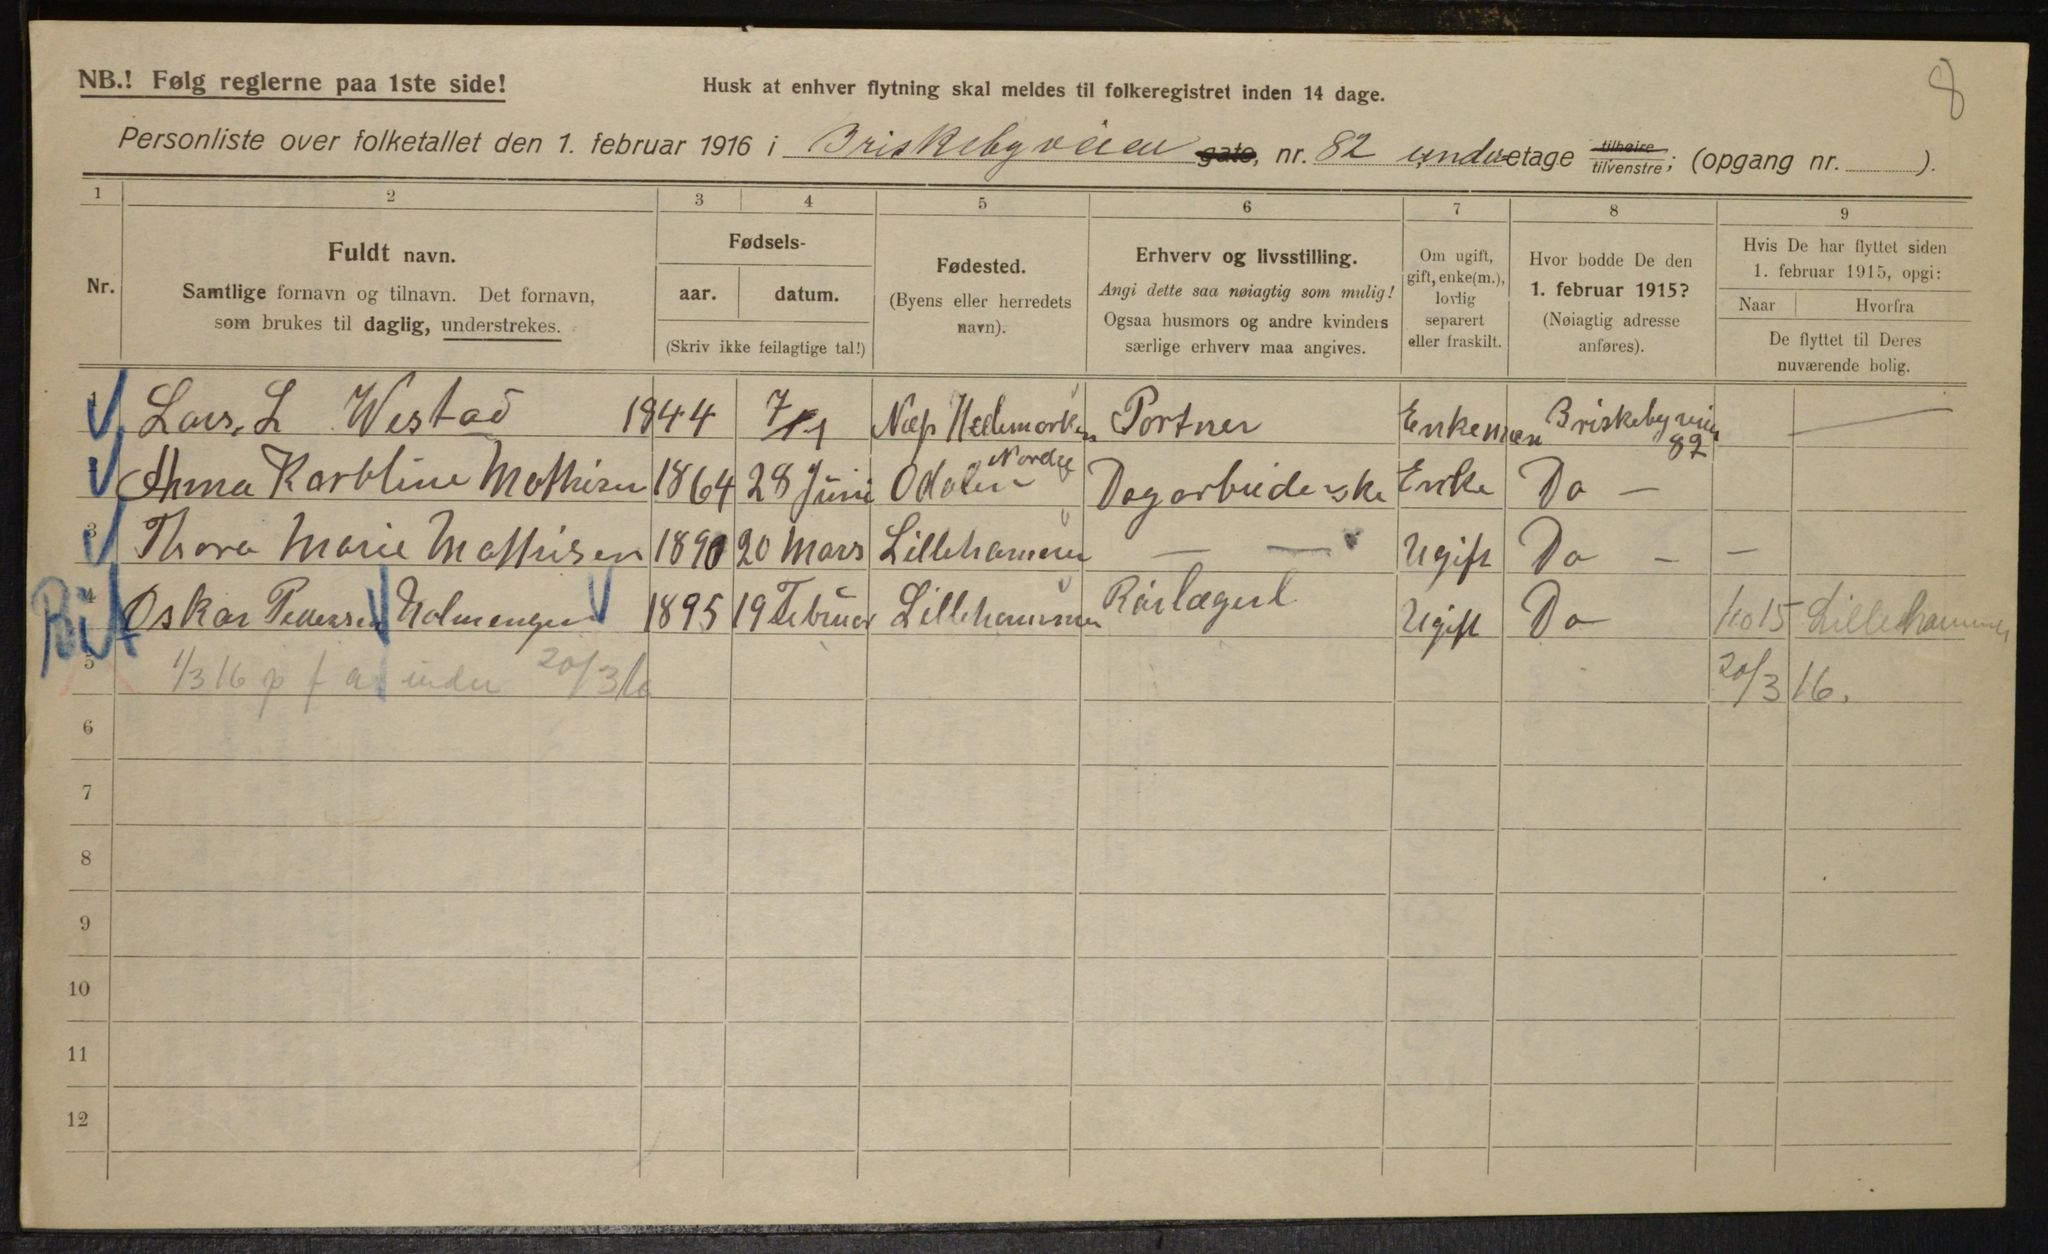 8
NB.! Følg reglerne paa 1ste side!
Husk at enhver flytning skal meldes til folkeregistret inden 14 dage.
Personliste over folketallet den 1. februar 1916 i Briskebyveien gate, nr. 82 underetage tilhøire/tilvenstre; (opgang nr. ).
1 2 3 4 5 6 7 8 9
Nr.
Fuldt navn.
Samtlige fornavn og tilnavn. Det fornavn,
som brukes til daglig, understrekes.
Fødsels-
aar. datum.
(Skriv ikke feilagtige tal!)
Fødested.
(Byens eller herredets
navn).
Erhverv og livsstilling.
Angi dette saa nøiagtig som mulig!
Ogsaa husmors og andre kvinders
særlige erhverv maa angives.
Om ugift,
gift, enke(m.),
lovlig
separert
eller fraskilt.
Hvor bodde De den
1. februar 1915?
(Nøiagtig adresse
anføres).
Hvis De har flyttet siden
1. februar 1915, opgi:
Naar Hvorfra
De flyttet til Deres
nuværende bolig.
1 Lars. L Westad 1844 7/1 Næs Hedemarken Portner Enkeman Briskebyveien 82 —
Anna Karoline Mathisen 1864 28 Juni Odalen Nordre Dagarbeiderske Enke Do —
3 Thora Marie Mathisen 1890 20 Mars Lillehammer — — Ugift Do — —
4 Oskar Pedersen Holmengen 1895 19 Februar Lillehammer Rørlægerl Ugift Do 15 Lillehammer
5 1/3 16 p f a inder 20/3 16 20/3 16.
6
7
8
9
10
11
12